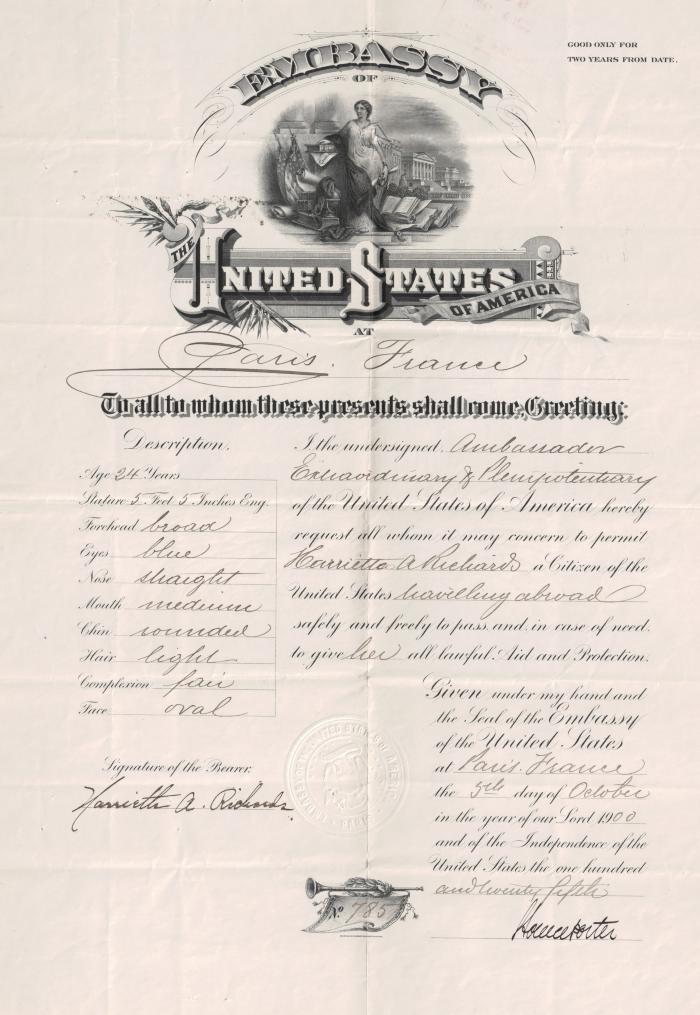 GOOD ONLY FOR
TWO YEARS FROM DATE.
EMBASSY
OF
THE
UNITED STATES
OF AMERICA
AT
Paris. France
To all to whom these presents shall come, Greeting:
Description.
Age 24 Years
Stature 5 Feet 5 Inches Eng.
Forehead broad
Eyes blue
Nose straight
Mouth medium
Chin rounded
Hair light
Complexion fair
Face oval
Signature of the Bearer.
Harrietta A. Richards
I the undersigned, Ambassador
Extraordinary & Plenipotentiary
of the United States of America hereby
request all whom it may concern to permit
Harrietta A Richards a Citizen of the
United States travelling abroad
safely and freely to pass, and, in case of need,
to give her all lawful Aid and Protection.
Given under my hand and
the Seal of the Embassy
of the United States
at Paris. France
the 5th day of October
in the year of our Lord 1900
and of the Independence of the
United States the one hundred
and twenty fifth
Horace Porter
No 785